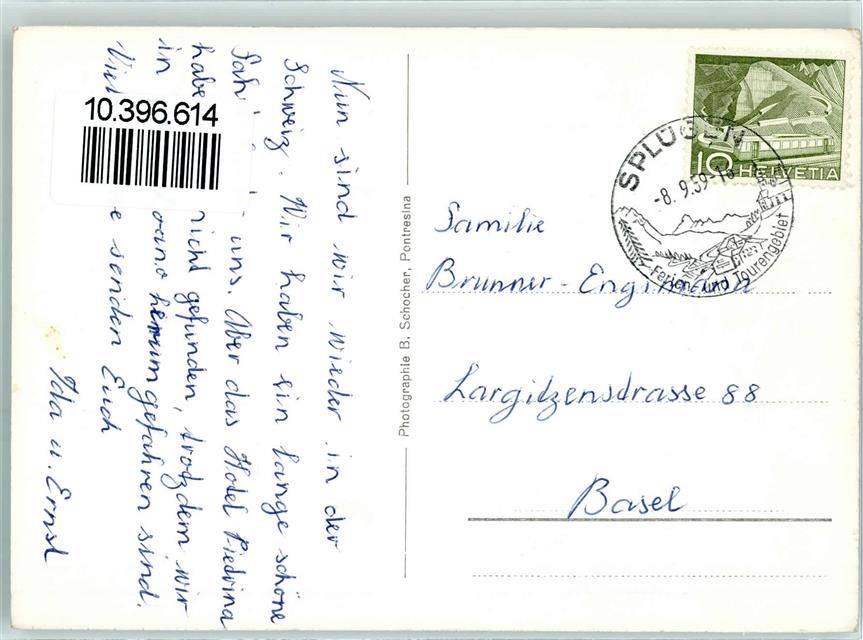 10.396.614
Nun sind wir wieder in der
Schweiz. Wir haben ein lange schöne
Fah uns. Aber das Hotel Piedvina
habe nicht gefunden, trotzdem wir
in herum gefahren sind.
senden Euch
Ida u. Ernst
Photographie B. Schocher, Pontresina
10 HELVETIA
SPLÜGEN
-8. 9.59-18
Ferien- und Tourengebiet
Familie
Brunner - Engimann
Largitzenstrasse 88
Basel